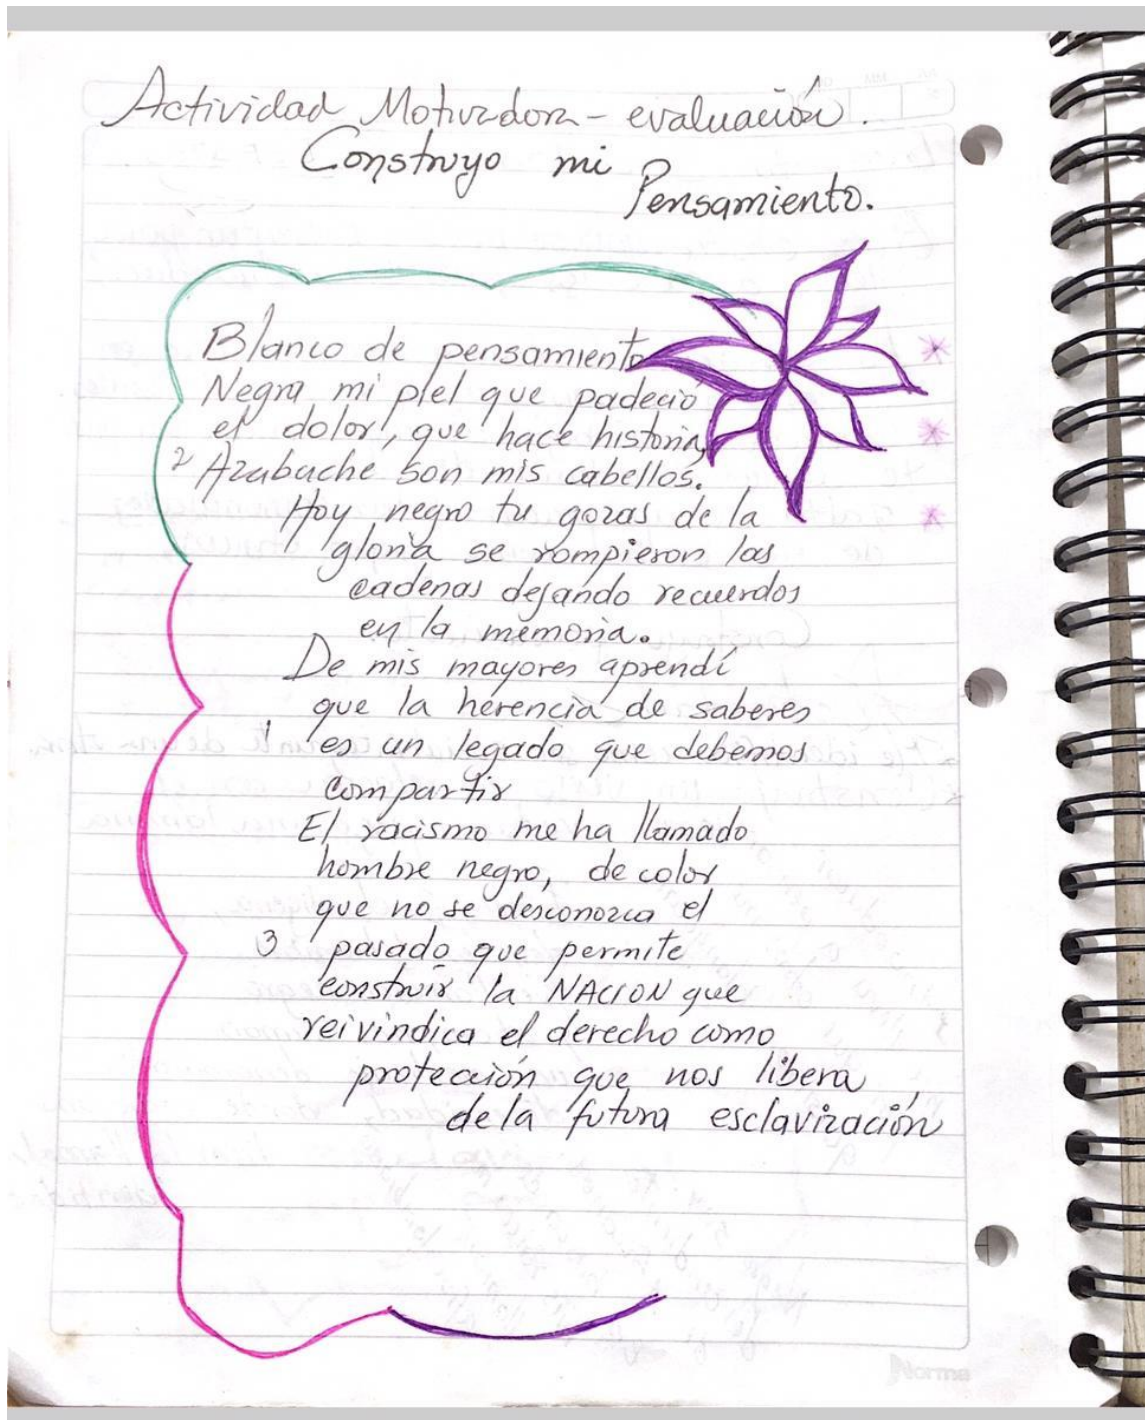 Actividad Motivadora - evaluación.
Construyo mi
Pensamiento.
Blanco de pensamiento
Negra mi piel que padeció
el dolor, que hace historia,
2 Azabache son mis cabellos.
Hoy negro tu gozas de la
gloria se rompieron las
cadenas dejando recuerdos
en la memoria.
De mis mayores aprendí
que la herencia de saberes
1 es un legado que debemos
compartir
El racismo me ha llamado
hombre negro, de color
que no se desconozca el
3 pasado que permite
construir la NACION que
reivindica el derecho como
protección que nos libera
de la futura esclavización
Norma